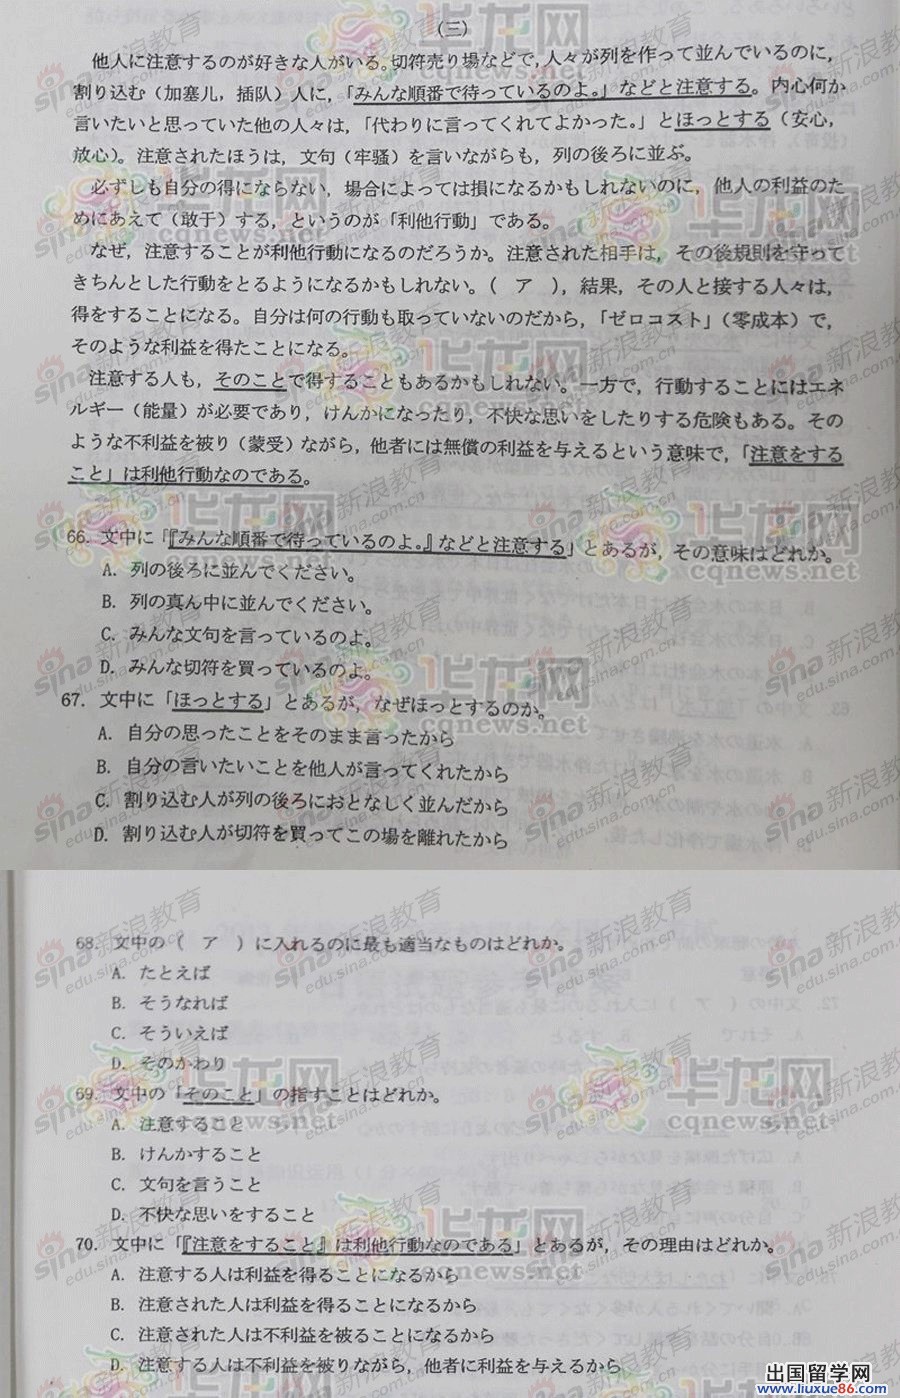 (三)
他人に注意するのが好きな人がいる。切符売り場などで，人々が列を作って並んでいるのに，
割り込む（加塞儿，插队）人に，「みんな順番で待っているのよ。」などと注意する。内心何か
言いたいと思っていた他の人々は，「代わりに言ってくれてよかった。」とほっとする（安心，
放心）。注意されたほうは，文句（牢骚）を言いながらも，列の後ろに並ぶ。
必ずしも自分の得にならない，場合によっては損になるかもしれないのに，他人の利益のた
めにあえて（敢于）する，というのが「利他行動」である。
なぜ，注意することが利他行動になるのだろうか。注意された相手は，その後規則を守って
きちんとした行動をとるようになるかもしれない。（　ア　），結果，その人と接する人々は，
得をすることになる。自分は何の行動も取っていないのだから，「ゼロコスト」（零成本）で，
そのような利益を得たことになる。
注意する人も，そのことで得することもあるかもしれない。一方で，行動することにはエネ
ルギー（能量）が必要であり，けんかになったり，不快な思いをしたりする危険もある。その
ような不利益を被り（蒙受）ながら，他者には無償の利益を与えるという意味で，「注意をする
こと」は利他行動なのである。
66. 文中に「『みんな順番で待っているのよ。』などと注意する」とあるが，その意味はどれか。
A. 列の後ろに並んでください。
B. 列の真ん中に並んでください。
C. みんな文句を言っているのよ。
D. みんな切符を買っているのよ。
67. 文中に「ほっとする」とあるが，なぜほっとするのか。
A. 自分の思ったことをそのまま言ったから
B. 自分の言いたいことを他人が言ってくれたから
C. 割り込む人が列の後ろにおとなしく並んだから
D. 割り込む人が切符を買ってこの場を離れたから
68. 文中の（　ア　）に入れるのに最も適当なものはどれか。
A. たとえば
B. そうなれば
C. そういえば
D. そのかわり
69. 文中の「そのこと」の指すことはどれか。
A. 注意すること
B. けんかすること
C. 文句を言うこと
D. 不快な思いをすること
70. 文中に「『注意をすること』は利他行動なのである」とあるが，その理由はどれか。
A. 注意する人は利益を得ることになるから
B. 注意された人は利益を得ることになるから
C. 注意された人は不利益を被ることになるから
D. 注意する人は不利益を被りながら，他者に利益を与えるから
sina 新浪教育
edu.sina.com.cn
华龙网
cqnews.net
出国留学网
www.liuxue86.com